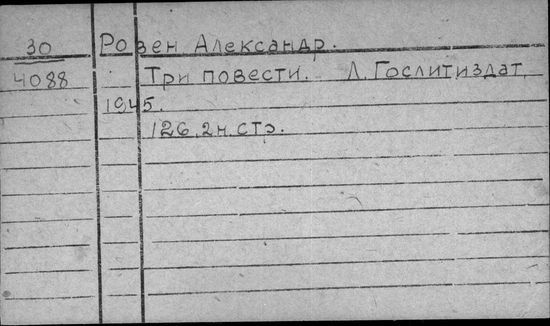 30 Розен Александр.
4088 Три повести. Л. Гослитиздат,
1945.
126, 2 н. стр.